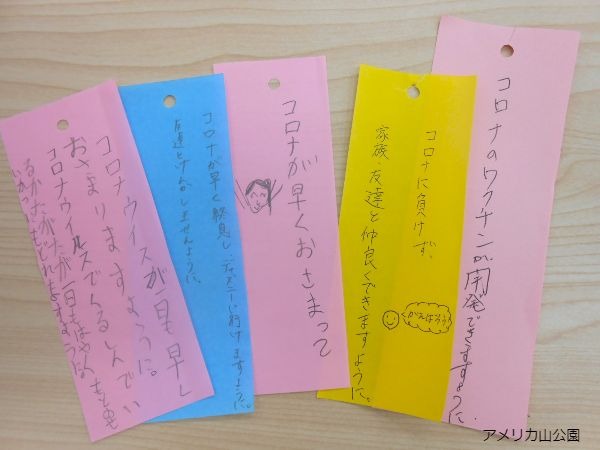 コロナのワクチンが開発できますように.
コロナに負けず、
家族 友達と仲良くできますように。
がんばろう!
コロナが早くおさまって
コロナが早く終息し、ディズニーに行けますように。
友達とけんかしませんように。
コロナウイスが一日も早く
おさまりますように。
コロナウイルスでくるしんでい
るかたがたが一日もはやく もとの
もどれますように
アメリカ山公園